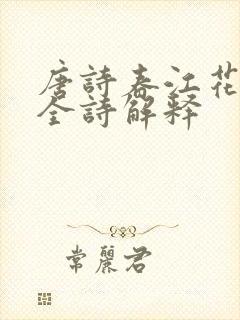 唐詩春江花
全詩解释
常麗君